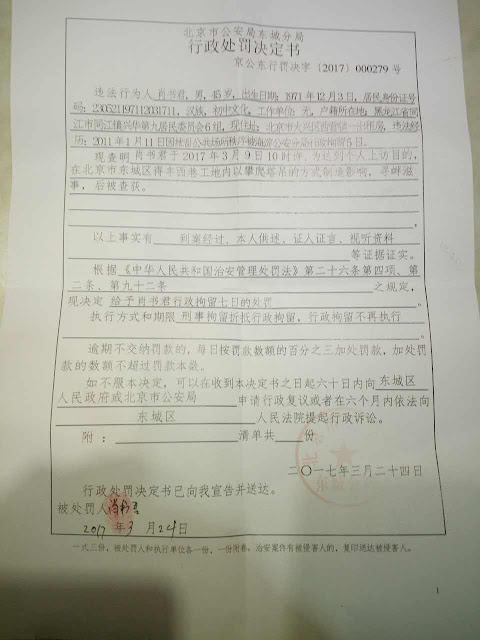 北京市公安局东城分局
行政处罚决定书
京公东行罚决字〔2017〕000279号
违法行为人肖书君，男，45岁，出生日期：1971年12月3日，居民身份证号
码：230521197112031711，汉族，初中文化，工作单位：无，户籍所在地：黑龙江省同
江市同江镇兴华第九居民委员会6组，现住址：北京市大兴区西红镇一出租房，违法经
历：2011年1月11日因扰乱公共场所秩序被海淀公安分局行政拘留5日。
现查明肖书君于2017年3月9日10时许，为达到个人上访目的，
在北京市东城区得丰西巷工地内以攀爬塔吊的方式制造影响，寻衅滋
事，后被查获。
以上事实有 到案经过、本人供述、证人证言、视听资料
等证据证实。
根据《中华人民共和国治安管理处罚法》第二十六条第四项、第
二条、第九十二条 之规定，
现决定 给予肖书君行政拘留七日的处罚
执行方式和期限 刑事拘留折抵行政拘留，行政拘留不再执行
逾期不交纳罚款的，每日按罚款数额的百分之三加处罚款，加处罚
款的数额不超过罚款本数。
如不服本决定，可以在收到本决定书之日起六十日内向 东城区
人民政府或北京市公安局 申请行政复议或者在六个月内依法向
东城区 人民法院提起行政诉讼。
附： 清单共 份
二〇一七年三月二十四日
行政处罚决定书已向我宣告并送达。
被处罚人 肖书君
2017 年 3 月 24 日
一式三份，被处罚人和执行单位各一份，一份附卷。治安案件有被侵害人的，复印送达被侵害人。
1